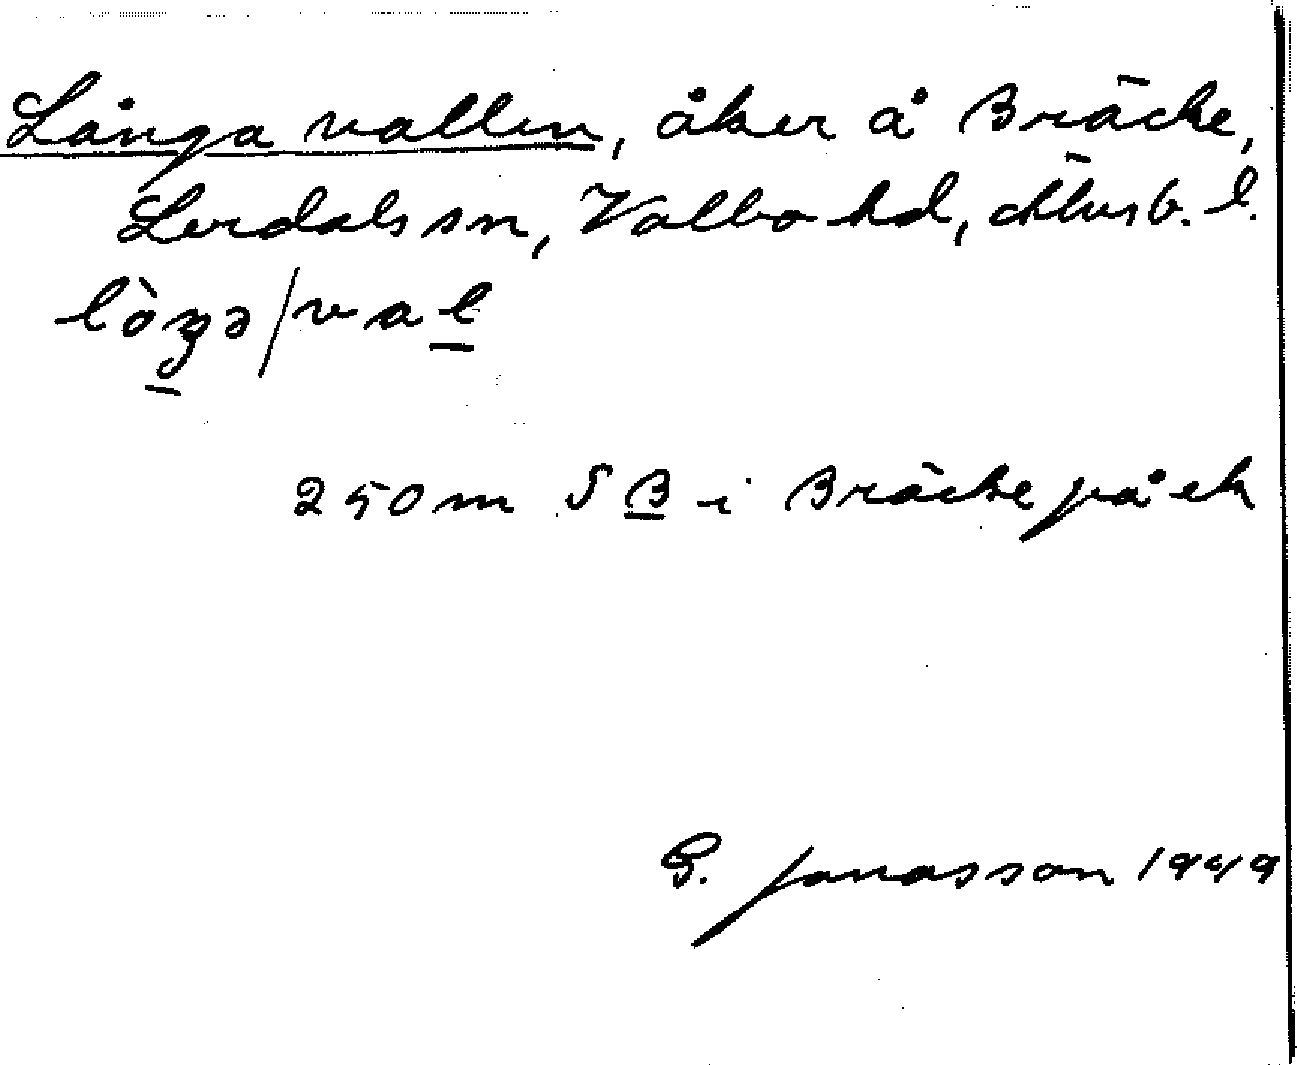 Långa vallen, åker å Bräcke,
Lerdals sn, Valbo hd, Älvsb. l.
250 m S B i Bräcke på ek
G. Jonasson 1949